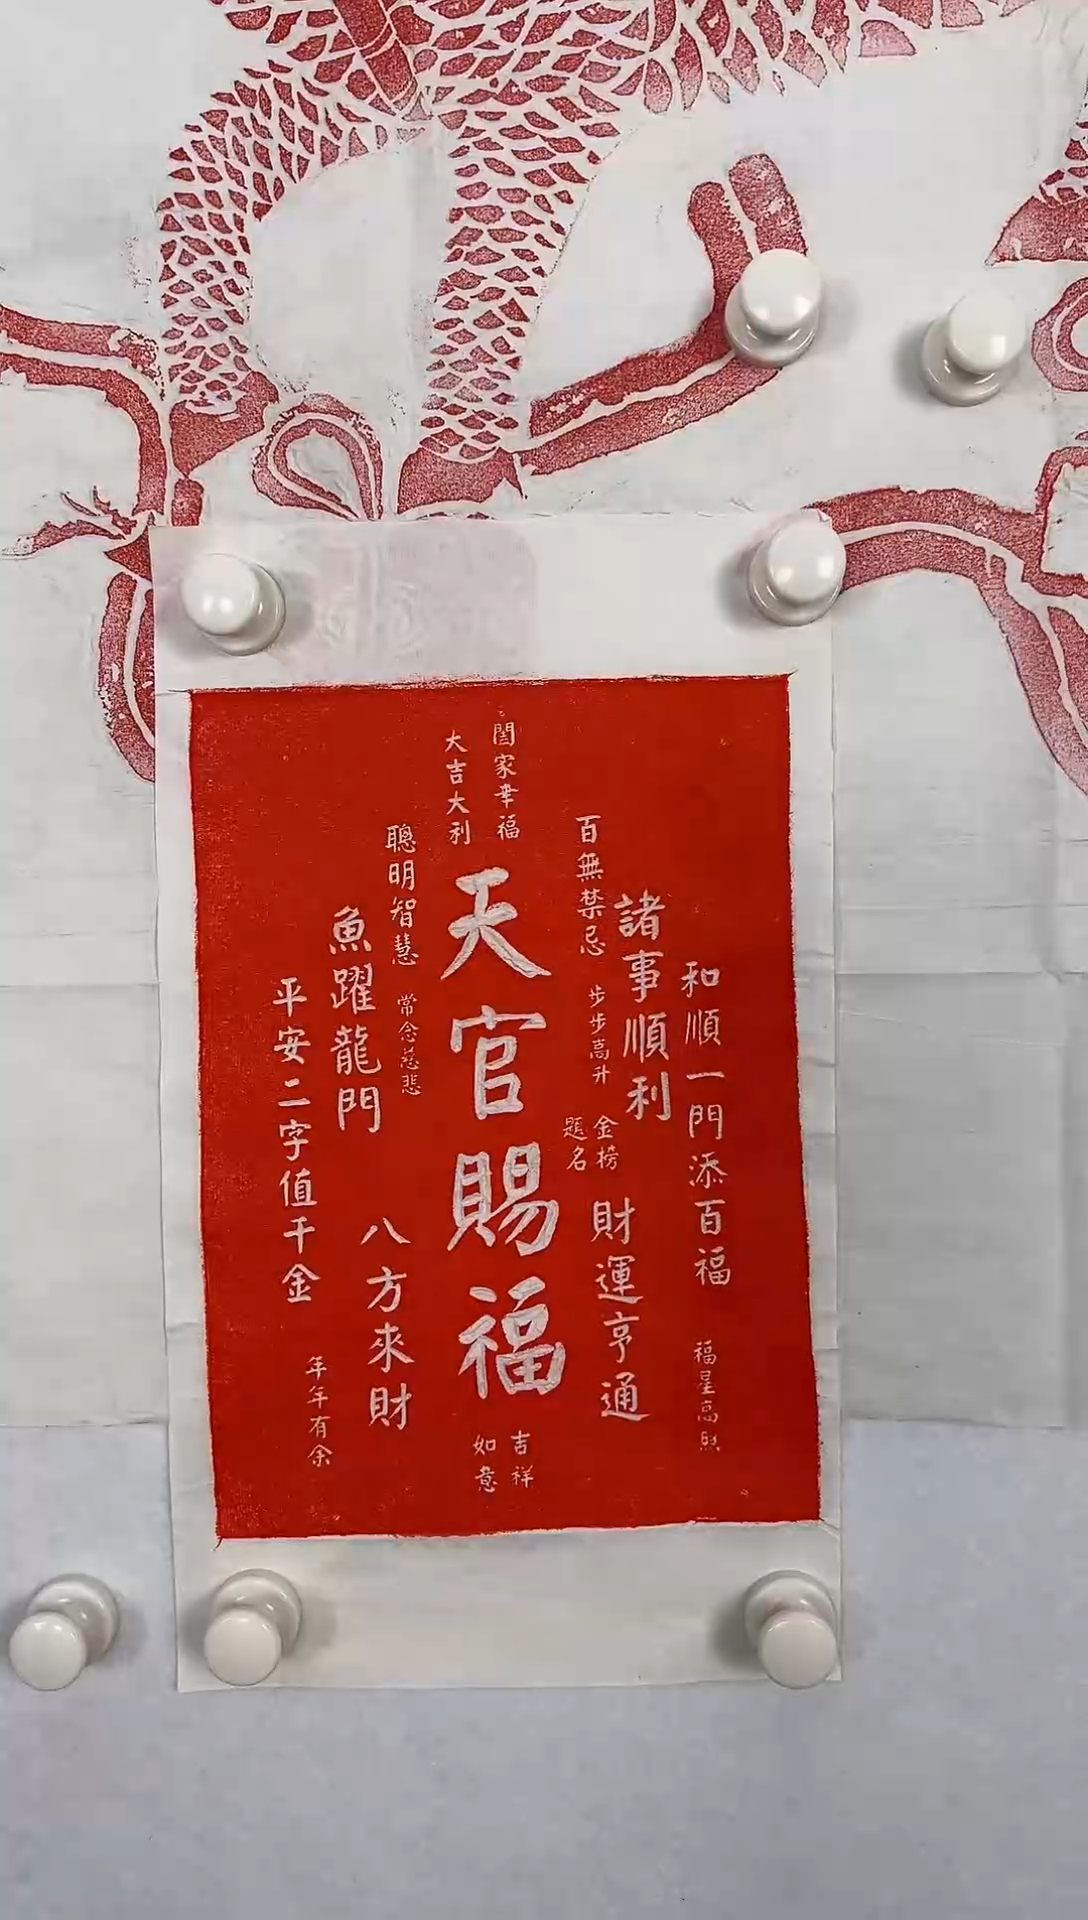 和順一門添百福
福星高照
諸事順利
百無禁忌
步步高升
金榜
題名
財運亨通
閤家幸福
大吉大利
天官賜福
吉祥
如意
聰明智慧
常念慈悲
魚躍龍門
八方來財
平安二字值千金
年年有余